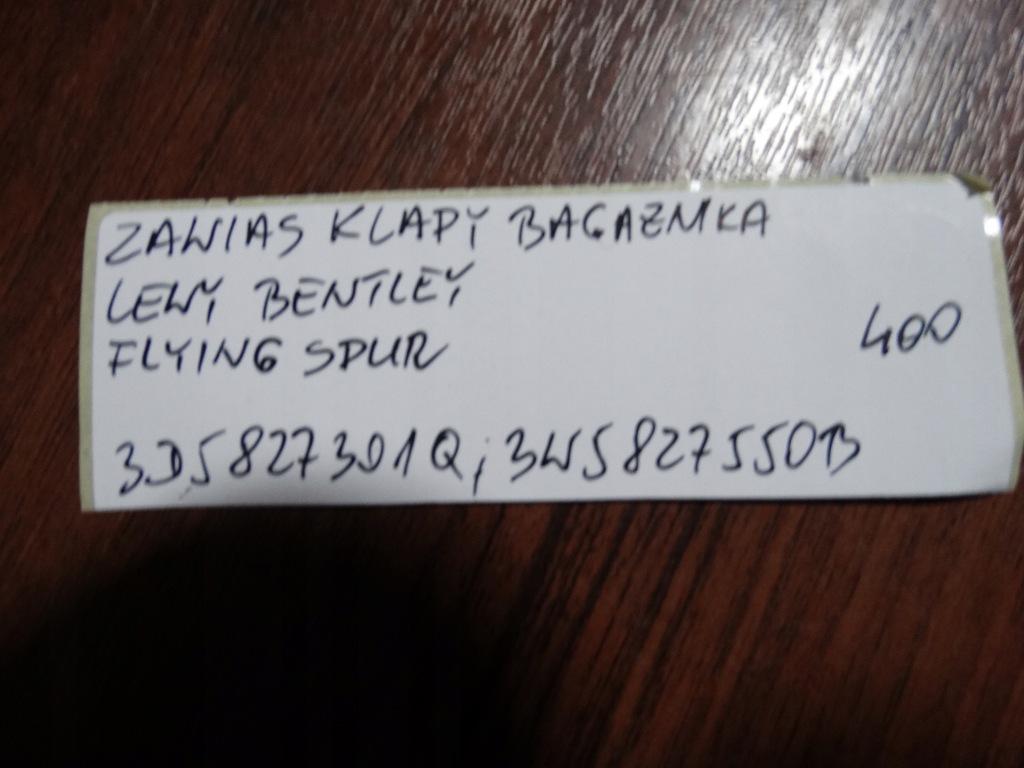 ZAWIAS KLAPY BAGAZNIKA
LEWY BENTLEY
FLYING SPUR
400
3D5827301Q; 3W5827550B